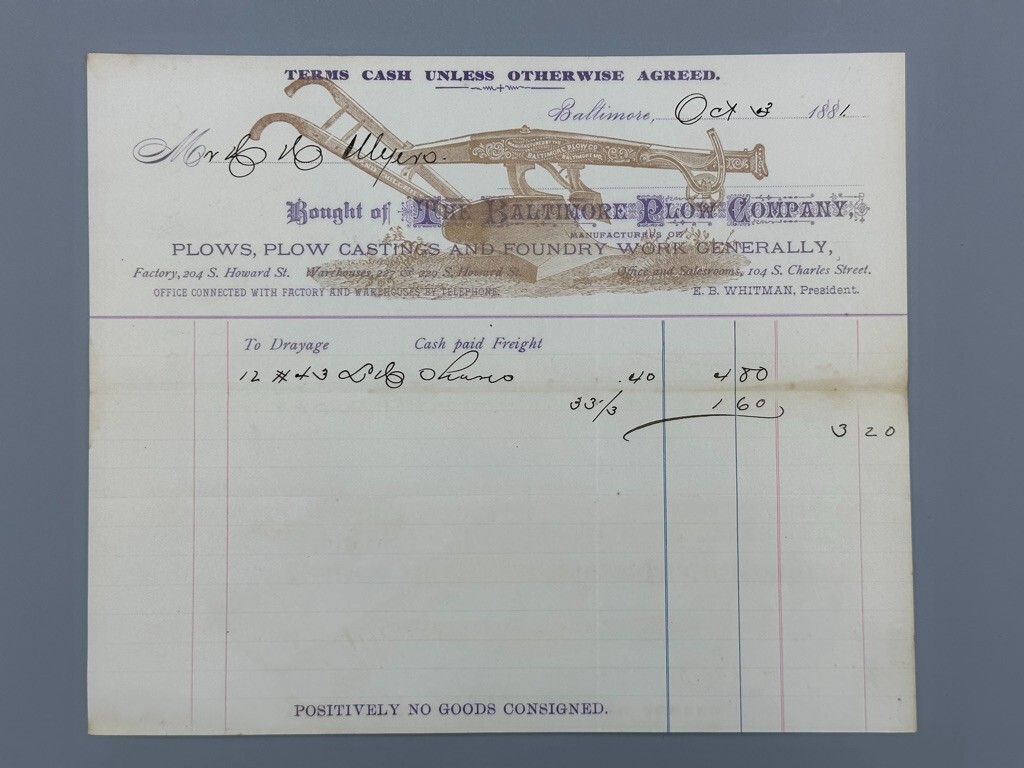 TERMS CASH UNLESS OTHERWISE AGREED.
Baltimore, Oct 3 1881.
Mr Myers.
MANUFACTURED BY THE
BALTIMORE PLOW CO.
BALTIMORE MD.
Bought of THE BALTIMORE PLOW COMPANY,
MANUFACTURERS OF
PLOWS, PLOW CASTINGS AND FOUNDRY WORK GENERALLY,
Factory, 204 S. Howard St. Warehouses, 227 & 229 S. Howard St. Office and Salesrooms, 104 S. Charles Street.
OFFICE CONNECTED WITH FACTORY AND WAREHOUSES BY TELEPHONE.
E. B. WHITMAN, President.
To Drayage Cash paid Freight
12 #43 Shares .40 4 80
33 1/3 1 60
3 20
POSITIVELY NO GOODS CONSIGNED.